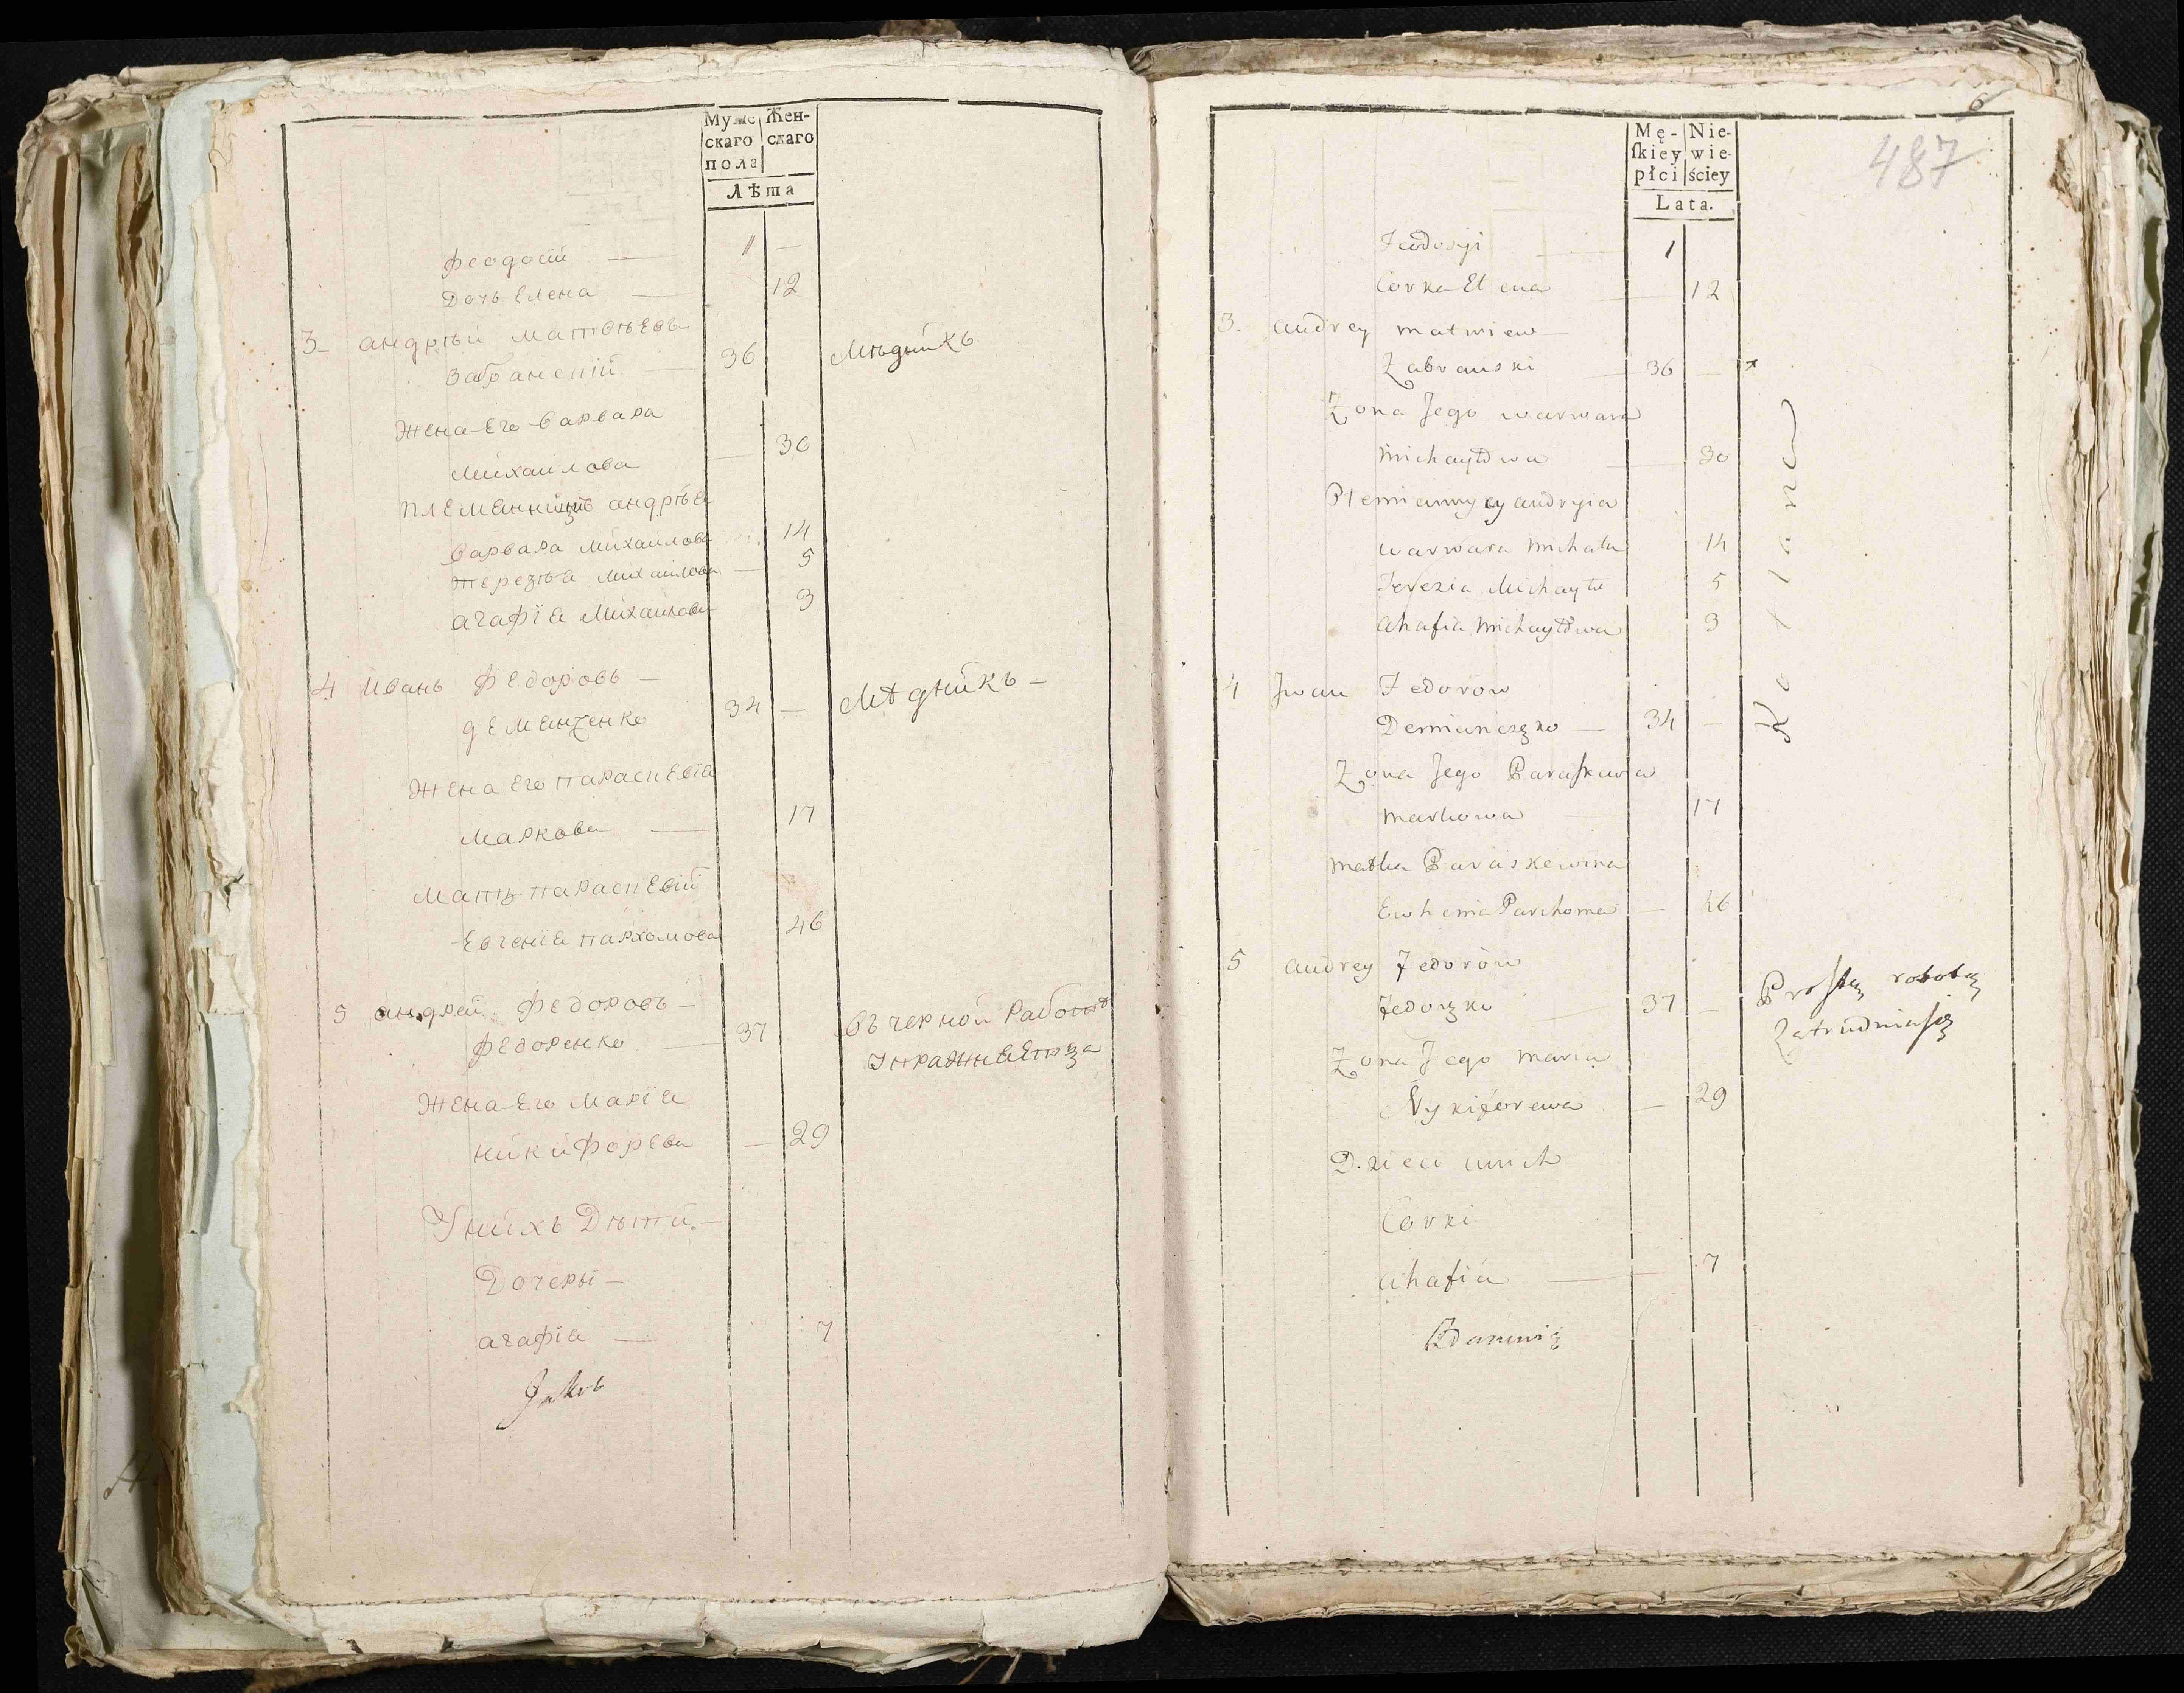 Муже
скаго
пола
Жен-
скаго
Лѣта
Феодосій — 1 —
Дочь Елена — 12
3 андрѣй матвѣевъ
Забранскій — 36 Мѣдникъ
Жена Его варвара
Михайлова — 30
племянницы андрѣя
варвара Михайлова 14
Терезія Михайлова — 5
агафія Михайлова 3
4 Иванъ Федоровъ —
демянченко 34 — Мѣдникъ —
Жена Его параскевія
Маркова — 17
Мать параскевій
Евгенія пархомова 46
5 андрей Федоровъ —
Федоренко — 37 въ черной работѣ
упражняется
Жена Его Марія
никифорева — 29
У нихъ Дѣти —
Дочери —
агафія — 7
6
487
Mę-
ſkiey
płci
Nie-
wie-
ściey
Lata.
Feodosyi 1
Corka Elena 12
3. andrey matwiew —
Zabranski 36 —
Zona Jego warwara
michayłowa 30
Plemiannycy andryia
warwara michała 14
Terezia Michayło 5
ahafia michayłowa 3
Kotlarze
4 Jwan Fedorow
Demianczęko — 34 —
Zona Jego Paraſkewia
markowa 17
matka Paraskewina
Ewhenia Parchoma — 46
5 andrey Fedorow
Fedorzko 37 — Proſtą robotą
zatrudniaſię
Zona Jego maria
Nykiforewa — 29
Dzieci unich
Corki
ahafia — 7